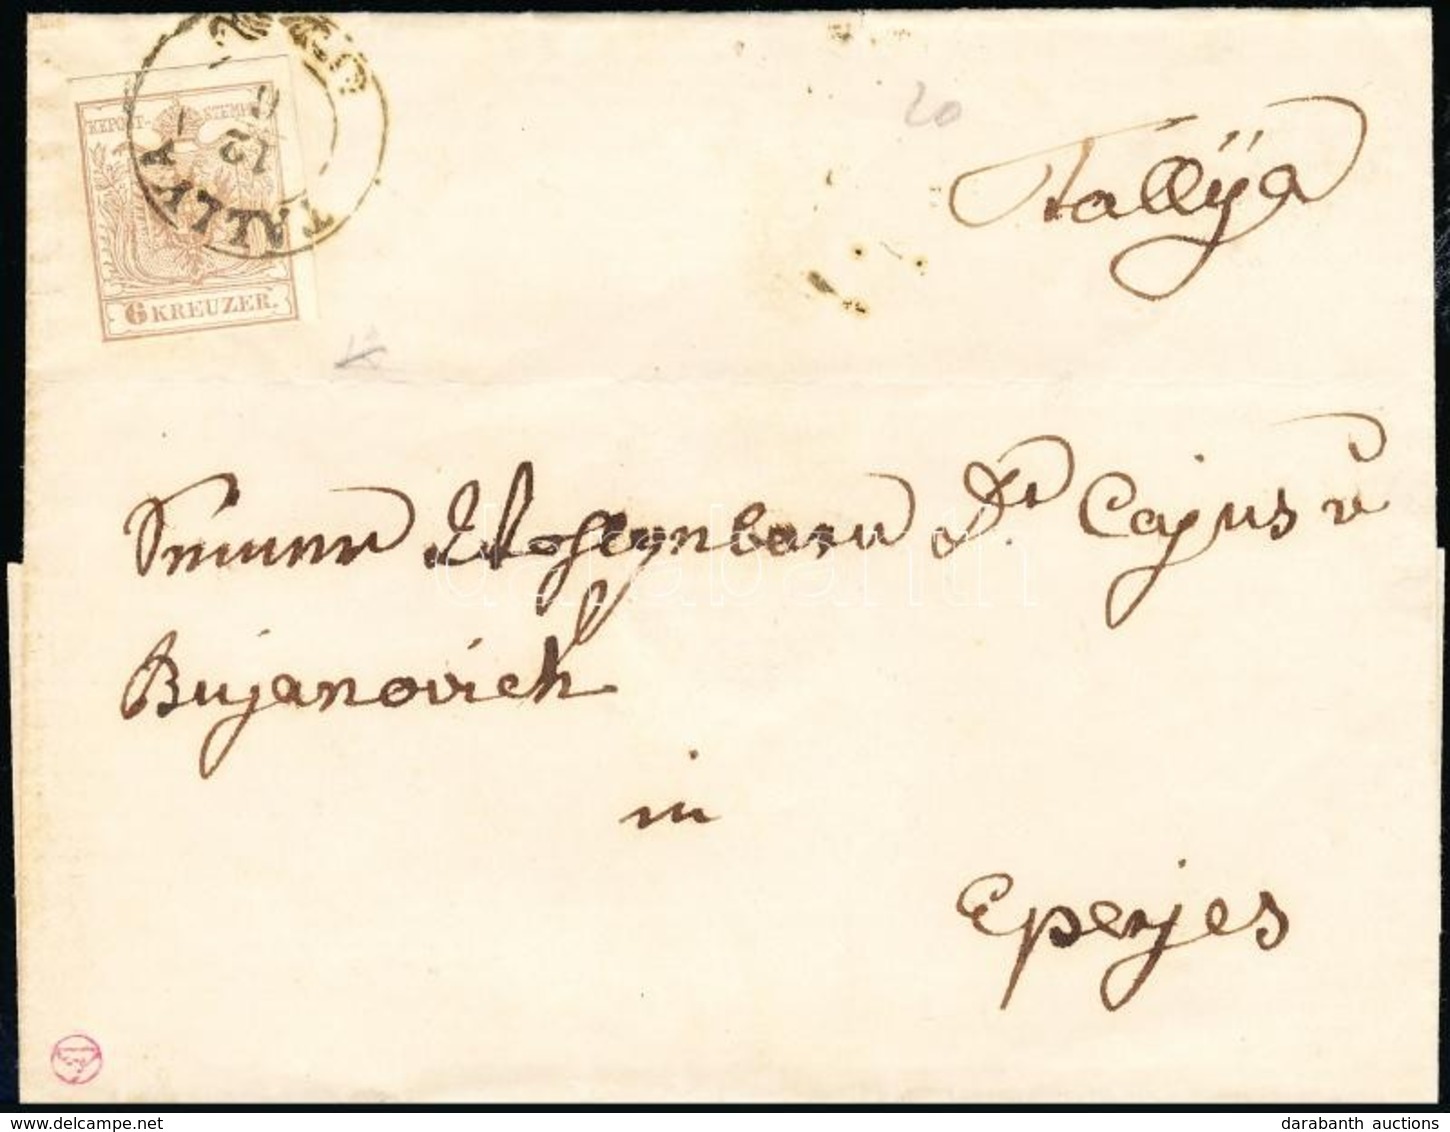 TALLYA
12
6
KKPOST-STEMPEL
6 KREUZER.
20
Tállÿa
Seiner Wohlgeborn Dr Cajus v
Bujanovich
in
Eperjes
darabanth
darabanth auctions
www.delcampe.net